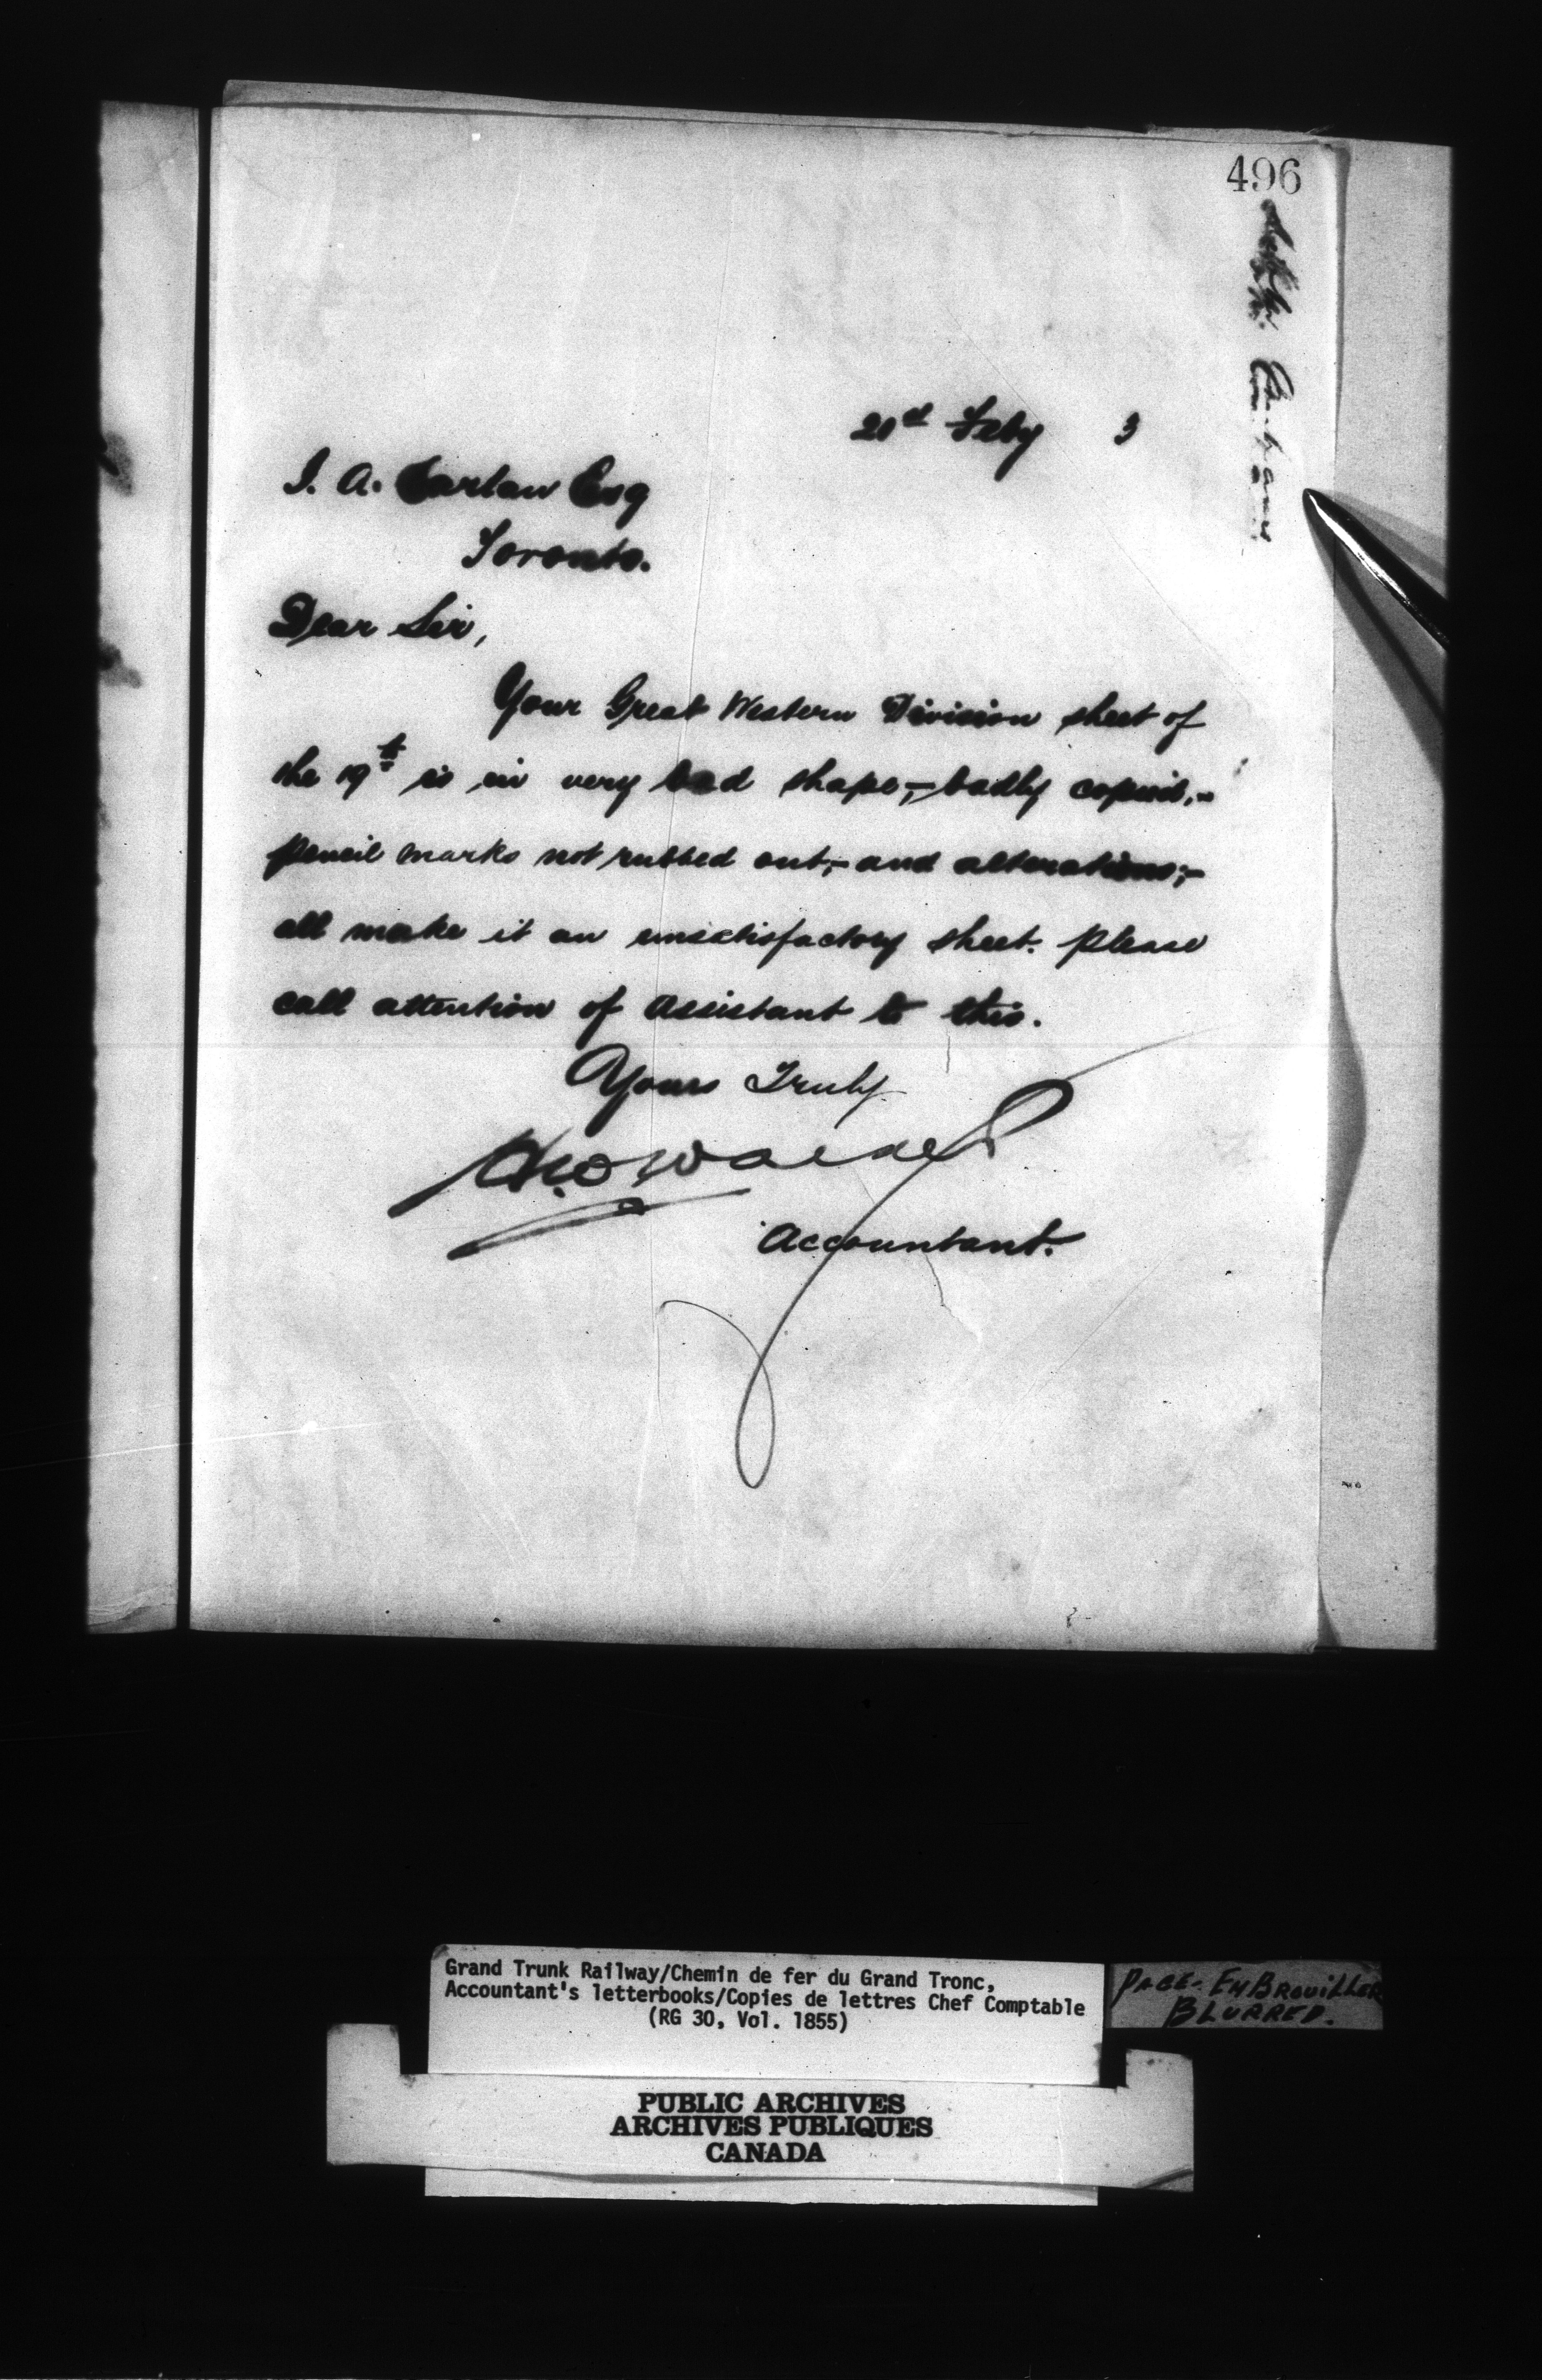 496
21st Feby 3
J. A. Carlaw Esq
Toronto.
Dear Sir,
Your Great Western Division sheet of
the 19th is in very bad shape,- badly copied,-
pencil marks not rubbed out,- and alterations;-
all make it an unsatisfactory sheet. Please
call attention of Assistant to this.
Yours Truly
Accountant.
Grand Trunk Railway/Chemin de fer du Grand Tronc,
Accountant's letterbooks/Copies de lettres Chef Comptable
(RG 30, Vol. 1855)
PAGE - EMBROUILLER
BLURRED.
PUBLIC ARCHIVES
ARCHIVES PUBLIQUES
CANADA